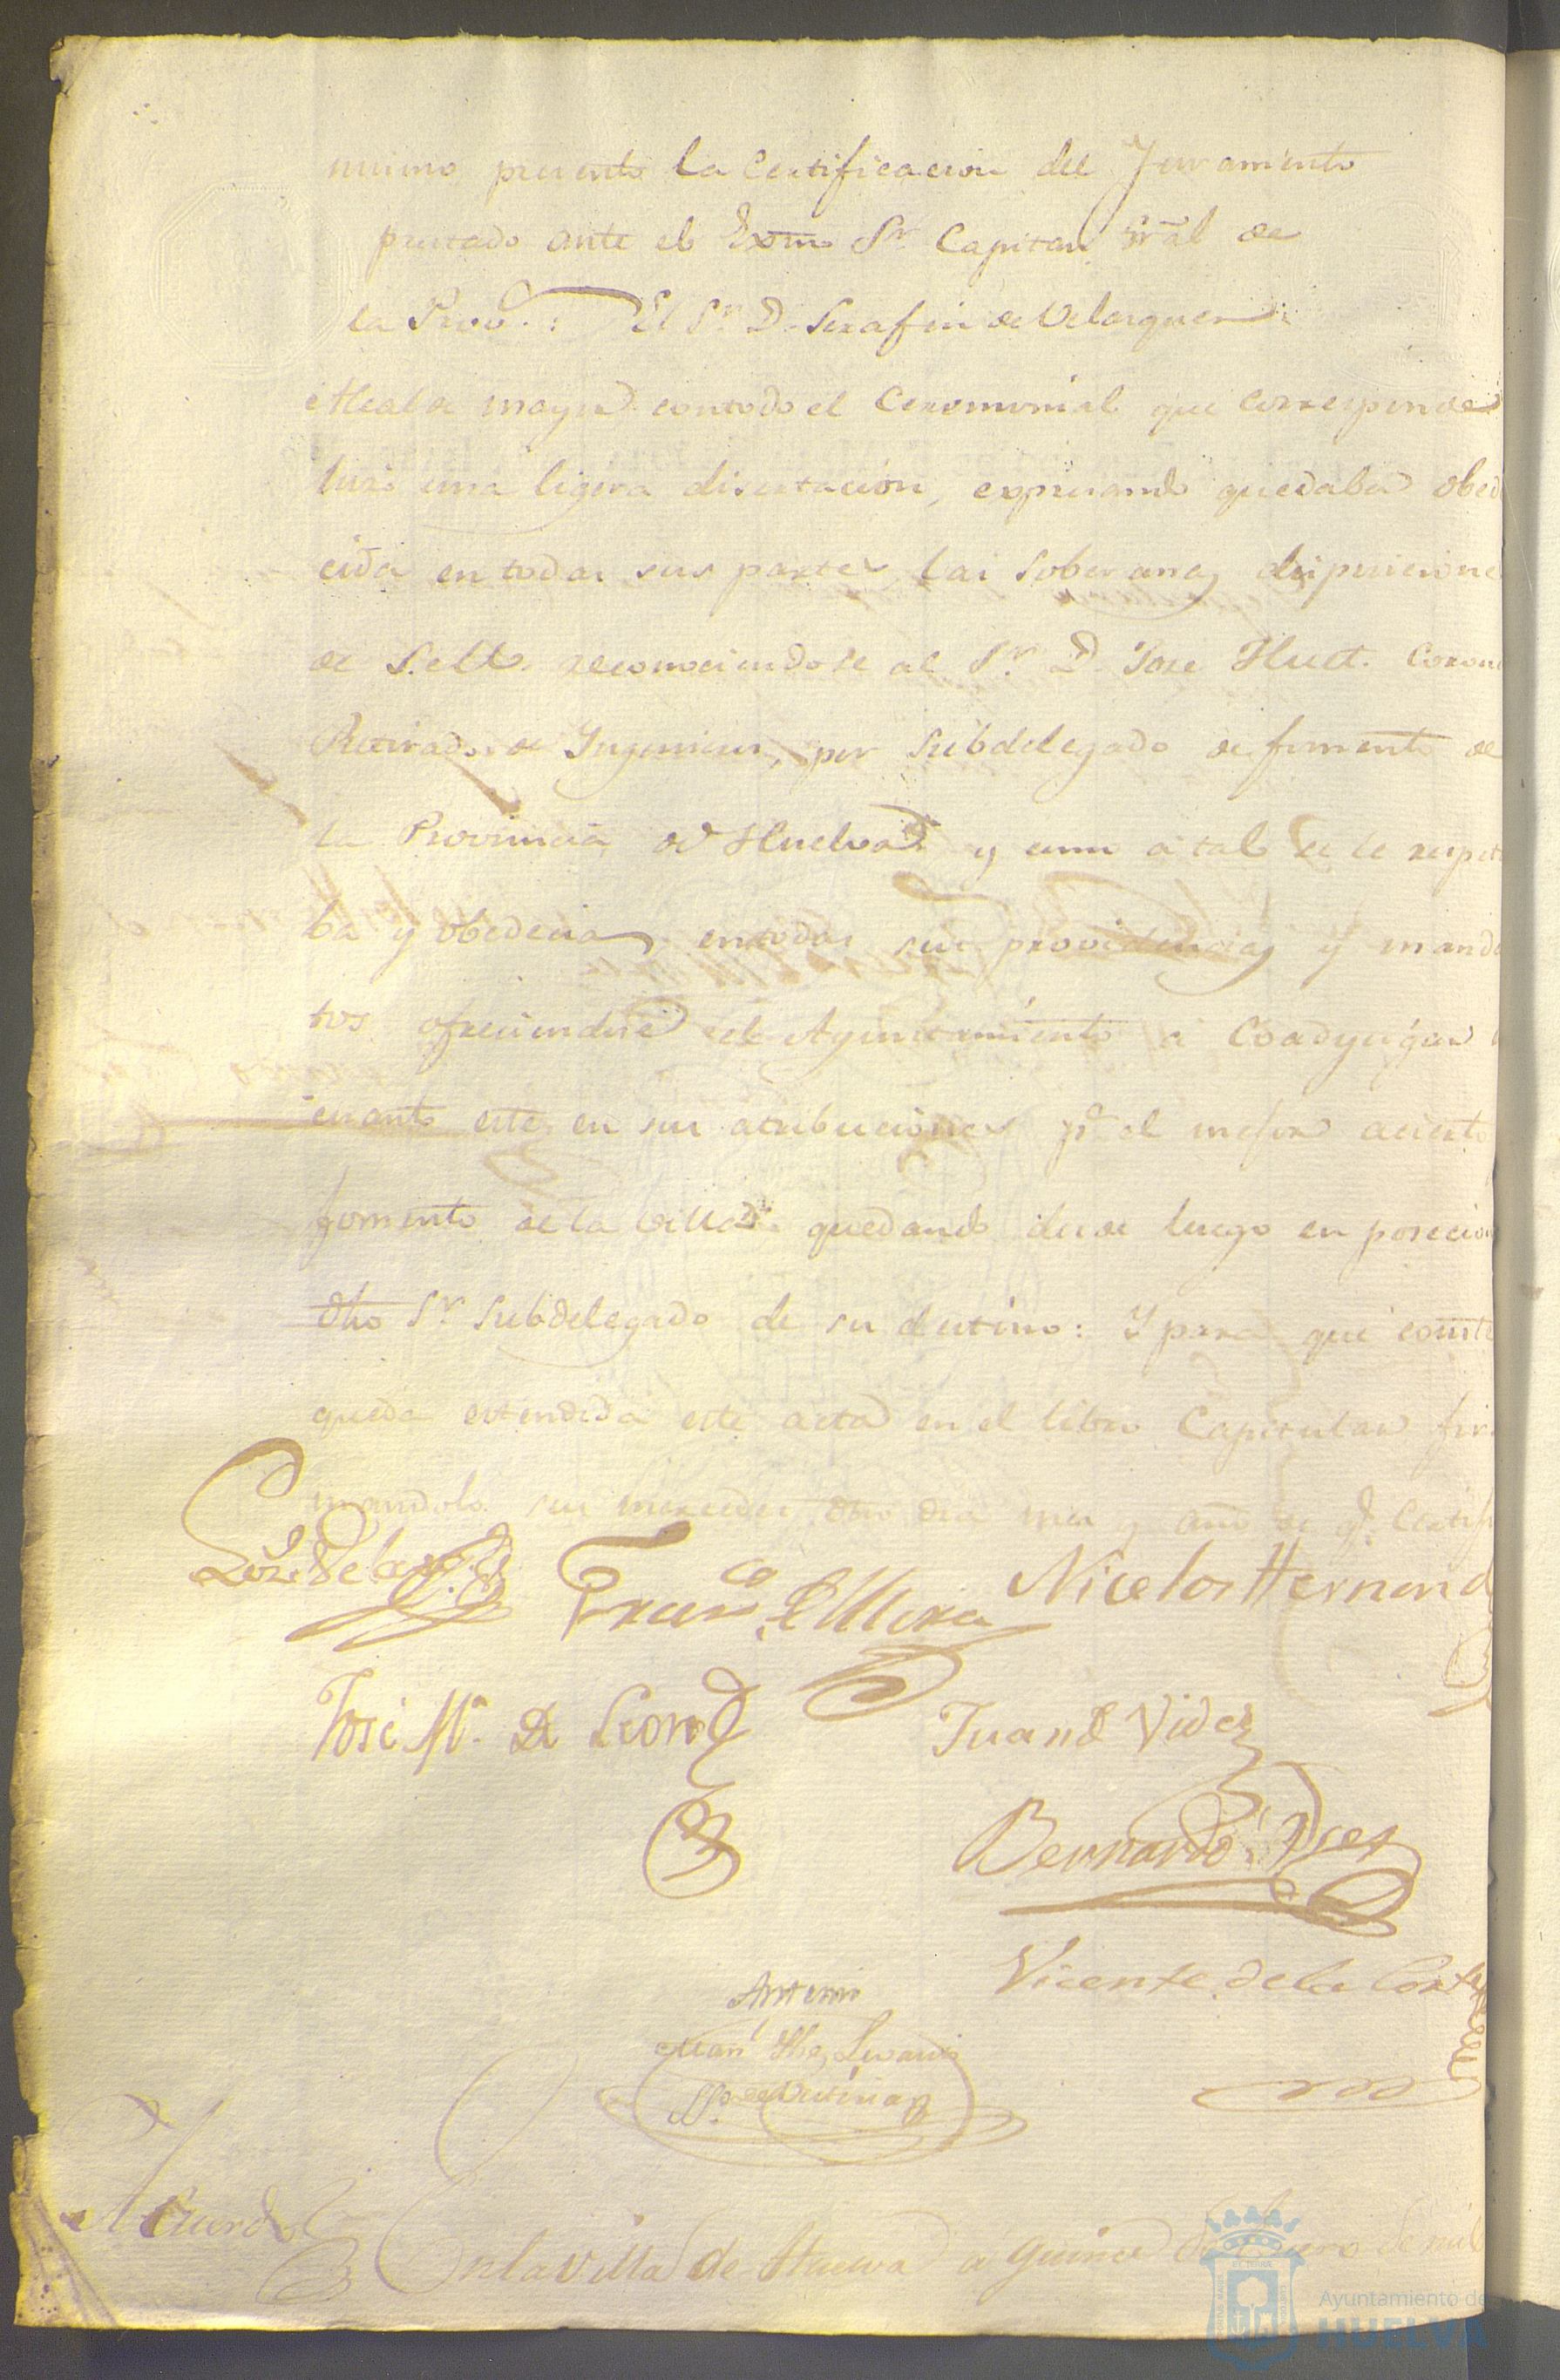 mismo presento la Certificacion del Juramento
prestado ante el Exmo Sr. Capitan Gral de
la Prov.: El Sr. D. Serafin de Velasquez
Alcalde mayor con todo el Ceremonial que corresponde
hizo una ligera disertacion, expresando quedaba obede
cida en todas sus partes las Soberanas disposicione
de S. M. reconociendose al Sr. D. Jose Huet. Corone
Retirado de Ingenieros, por Subdelegado de fomento de
la Provincia de Huelva y como a tal se le respeta
ba y obedecia en todas sus providencias y manda
tos ofreciendose el Ayuntamiento a Coadyugar
cuanto este en sus atribuciones pa. el mejor acierto
fomento de la Villa quedando desde luego en posecion
dho Sr. Subdelegado de su destino: Y para que conste
queda estendida este acta en el libro Capitular fir
mandolo sus mercedes dho dia mes y año de q. Certifi
Franco. de Mora
Nicolos Hernand
José Ma. de Leon
Juan de Vides
Bernardo
Vicente de la Corte
Antemi
Acuerdo
En la Villa de Huelva a quince de Enero de mil
Ayuntamiento de
HUELVA